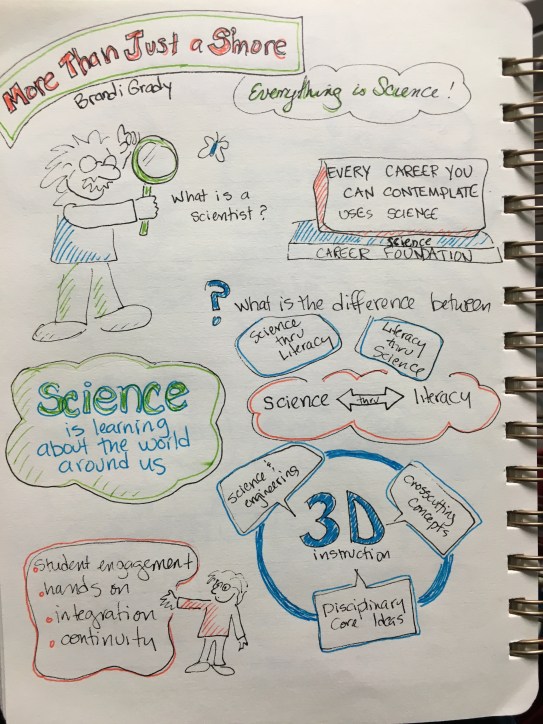 More Than Just a S'more
Brandi Grady
Everything is Science!
What is a
scientist?
EVERY CAREER YOU
CAN CONTEMPLATE
USES SCIENCE
science
CAREER FOUNDATION
? What is the difference between
Science
thru
Literacy
Literacy
thru
Science
science thru literacy
Science
is learning
about the world
around us
science +
engineering
3D
instruction
Crosscutting
Concepts
Disciplinary
Core Ideas
• student engagement
• hands on
• integration
• continuity